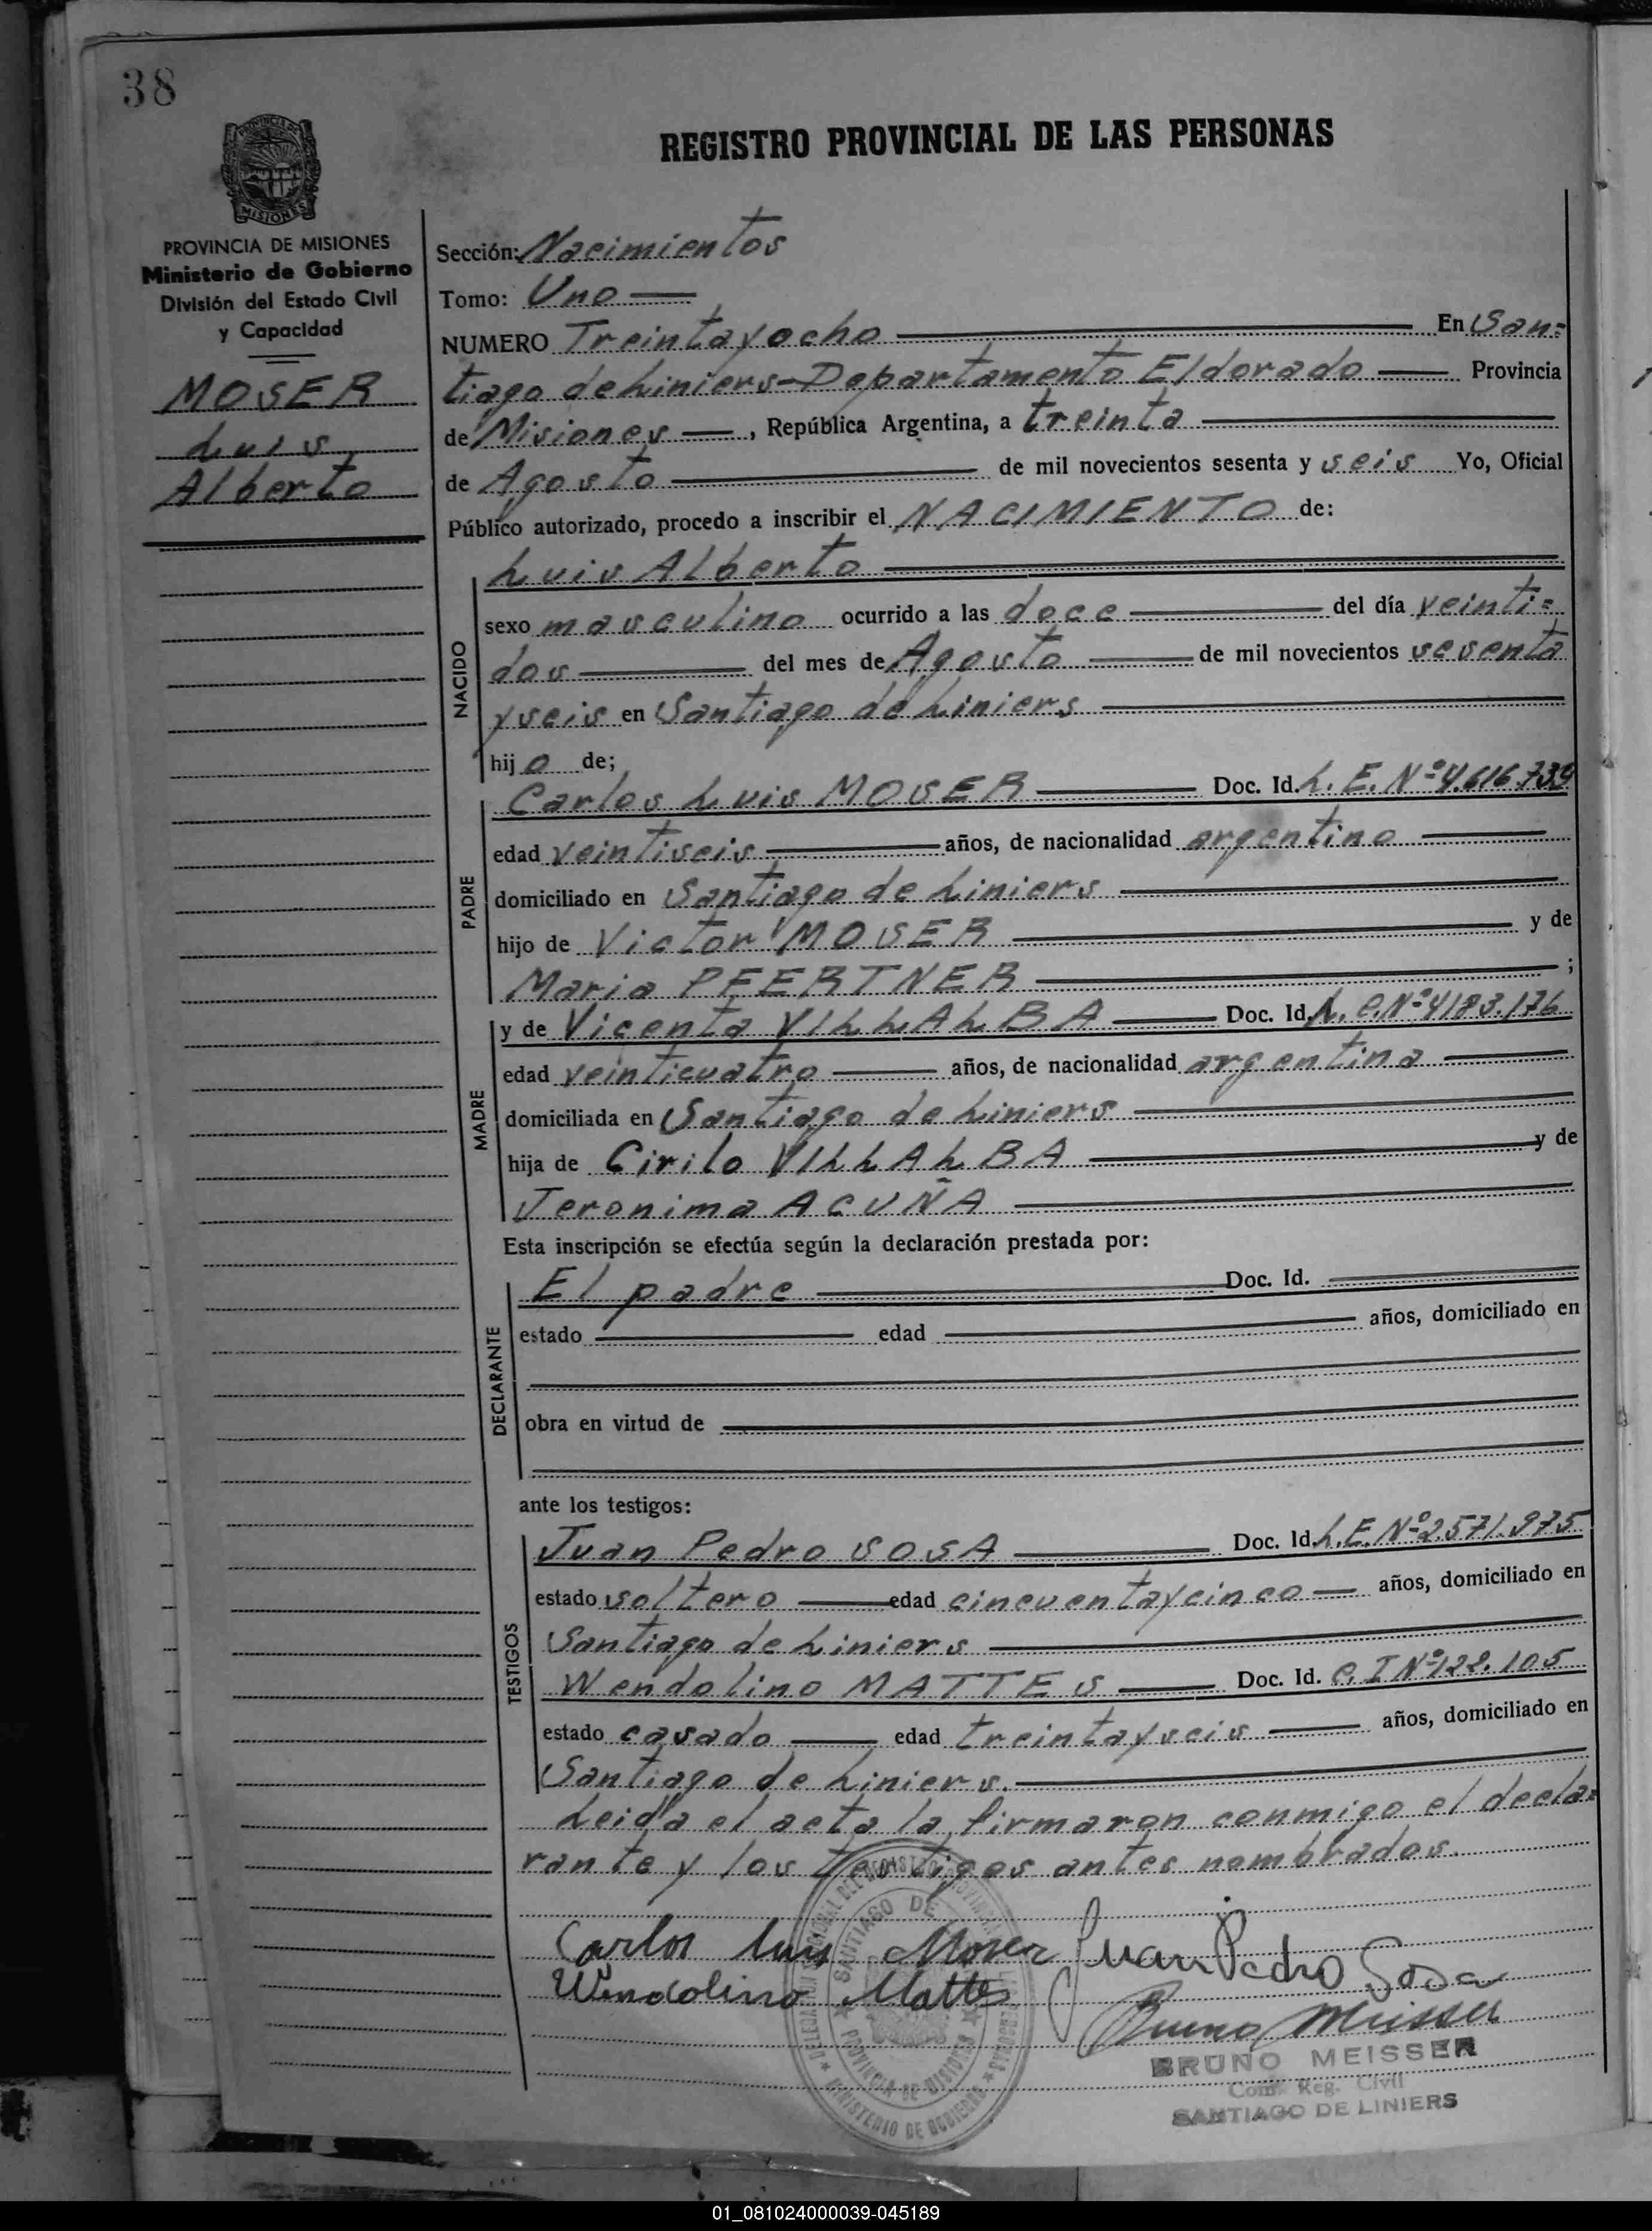 38
PROVINCIA DE
MISIONES
REGISTRO PROVINCIAL DE LAS PERSONAS
PROVINCIA DE MISIONES
Ministerio de Gobierno
División del Estado Civil
y Capacidad
MOSER
Luis
Alberto
Sección: Nacimientos
Tomo: Uno
NUMERO Treintayocho En San=
tiago de Liniers-Departamento Eldorado Provincia
de Misiones, República Argentina, a treinta
de Agosto de mil novecientos sesenta y seis Yo, Oficial
Público autorizado, procedo a inscribir el NACIMIENTO de:
NACIDO
Luis Alberto
sexo masculino ocurrido a las doce del día veinti=
dos del mes de Agosto de mil novecientos sesenta
y seis en Santiago de Liniers
hijo de;
PADRE
Carlos Luis MOSER Doc. Id. L. E. Nº 4.616.739
edad veintiseis años, de nacionalidad argentino
domiciliado en Santiago de Liniers
hijo de Victor MOSER y de
Maria PFERTNER ;
MADRE
y de Vicenta VILLALBA Doc. Id. L. C. Nº 4183.176
edad veinticuatro años, de nacionalidad argentina
domiciliada en Santiago de Liniers
hija de Cirilo VILLALBA y de
Jeronima ACUÑA
Esta inscripción se efectúa según la declaración prestada por:
DECLARANTE
El padre Doc. Id.
estado edad años, domiciliado en
obra en virtud de
ante los testigos:
TESTIGOS
Juan Pedro SOSA Doc. Id. L. E. Nº 2.571.975
estado soltero edad cincuentaycinco años, domiciliado en
Santiago de Liniers
Wendolino MATTES Doc. Id. C. I Nº 122.105
estado casado edad treintayseis años, domiciliado en
Santiago de Liniers.
Leida el acta la firmaron conmigo el decla=
rante y los testigos antes nombrados.
Carlos Luis Moser Juan Pedro Sosa
Wendolino Mattes
Bruno Meisser
BRUNO MEISSER
Reg. Civil
SANTIAGO DE LINIERS
SANTIAGO DE
PROVINCIA DE MISIONES
MINISTERIO DE GOBIERNO
01_081024000039-045189